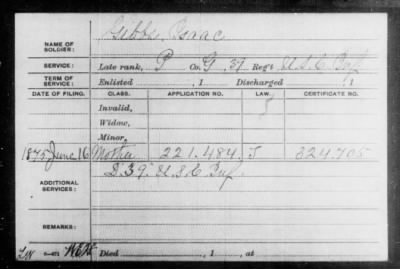 Gibbs, Isaac
NAME OF SOLDIER:
SERVICE: Late rank, P Co. G, 39 Reg't U.S.C. Inf
TERM OF SERVICE: Enlisted , 1 Discharged , 1
DATE OF FILING. CLASS. APPLICATION NO. LAW. CERTIFICATE NO.
Invalid,
Widow,
Minor,
1875 June 16 Mother 221.484 J 324.705
ADDITIONAL SERVICES: D. 39" U.S.C Inf.
REMARKS:
3—671 Died , 1 , at